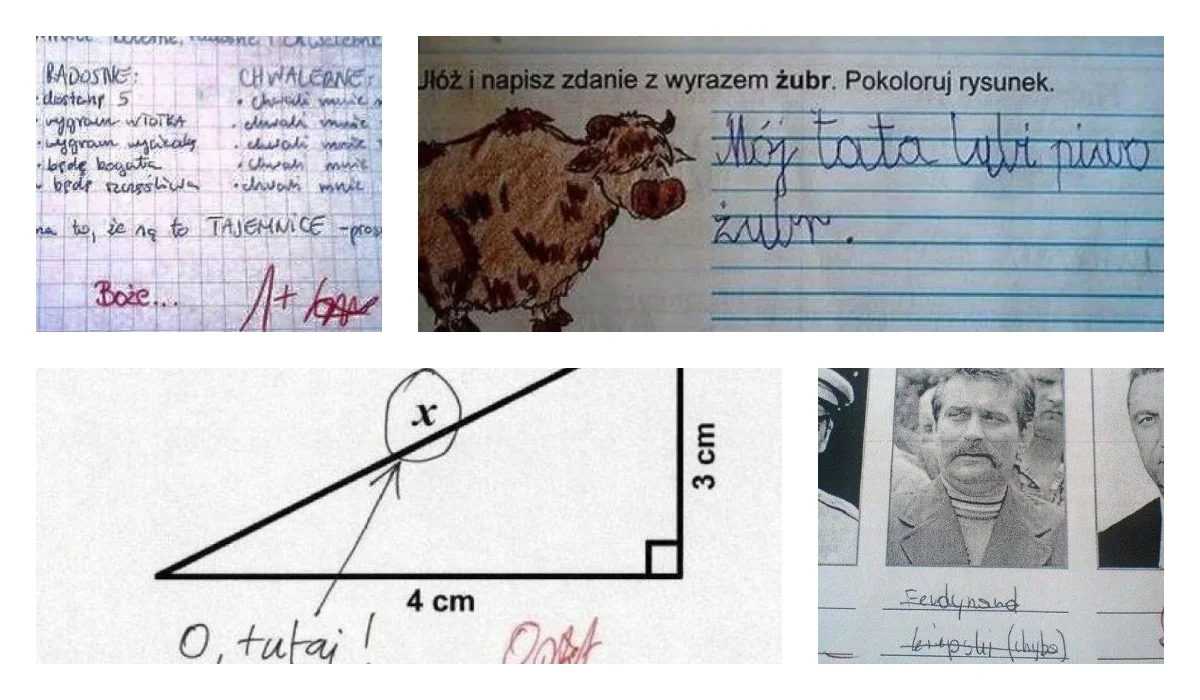 RADOSNE: CHWALEBNE:
• dostanę 5 • chwali mnie
• wygram WIOTKA • chwali mnie
• wygram wyścig • chwali mnie
• będę bogata • chwali mnie
• będę szczęśliwa • chwali mnie
na to, że są to TAJEMNICE -
Boże... 1+
Ułóż i napisz zdanie z wyrazem żubr. Pokoloruj rysunek.
Mój tata lubi piwo
żubr.
x
3 cm
4 cm
O, tutaj!
0 pkt
Ferdynand
kiepski (chyba)